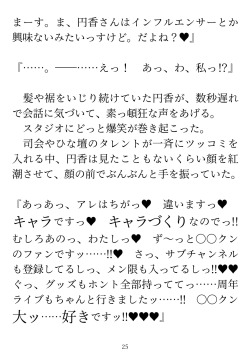 まーす。ま、円香さんはインフルエンサーとか
興味ないみたいっすけど。だよね？♥』
『……。――……えっ！　あっ、わ、私っ!?』
　髪や裾をいじり続けていた円香が、数秒遅れ
で会話に気づいて、素っ頓狂な声をあげる。
　スタジオにどっと爆笑が巻き起こった。
　司会やひな壇のタレントが一斉にツッコミを
入れる中、円香は見たこともないくらい顔を紅
潮させて、顔の前でぶんぶんと手を振っていた。
『あっあっ、アレはちがっ♥　違いますっ♥
キャラですっ♥　キャラづくりなのでっ!!
むしろあのっ、わたしっ♥　ず〜っと○○クン
のファンですッ……!!♥　さっ、サブチャンネル
も登録してるしっ、メン限も入ってるしっ!!♥♥
ぐっ、グッズもホント全部持っててっ……周年
ライブもちゃんと行きましたッ……!!　○○クン
大ッ……好きですッ!!♥♥♥』
25